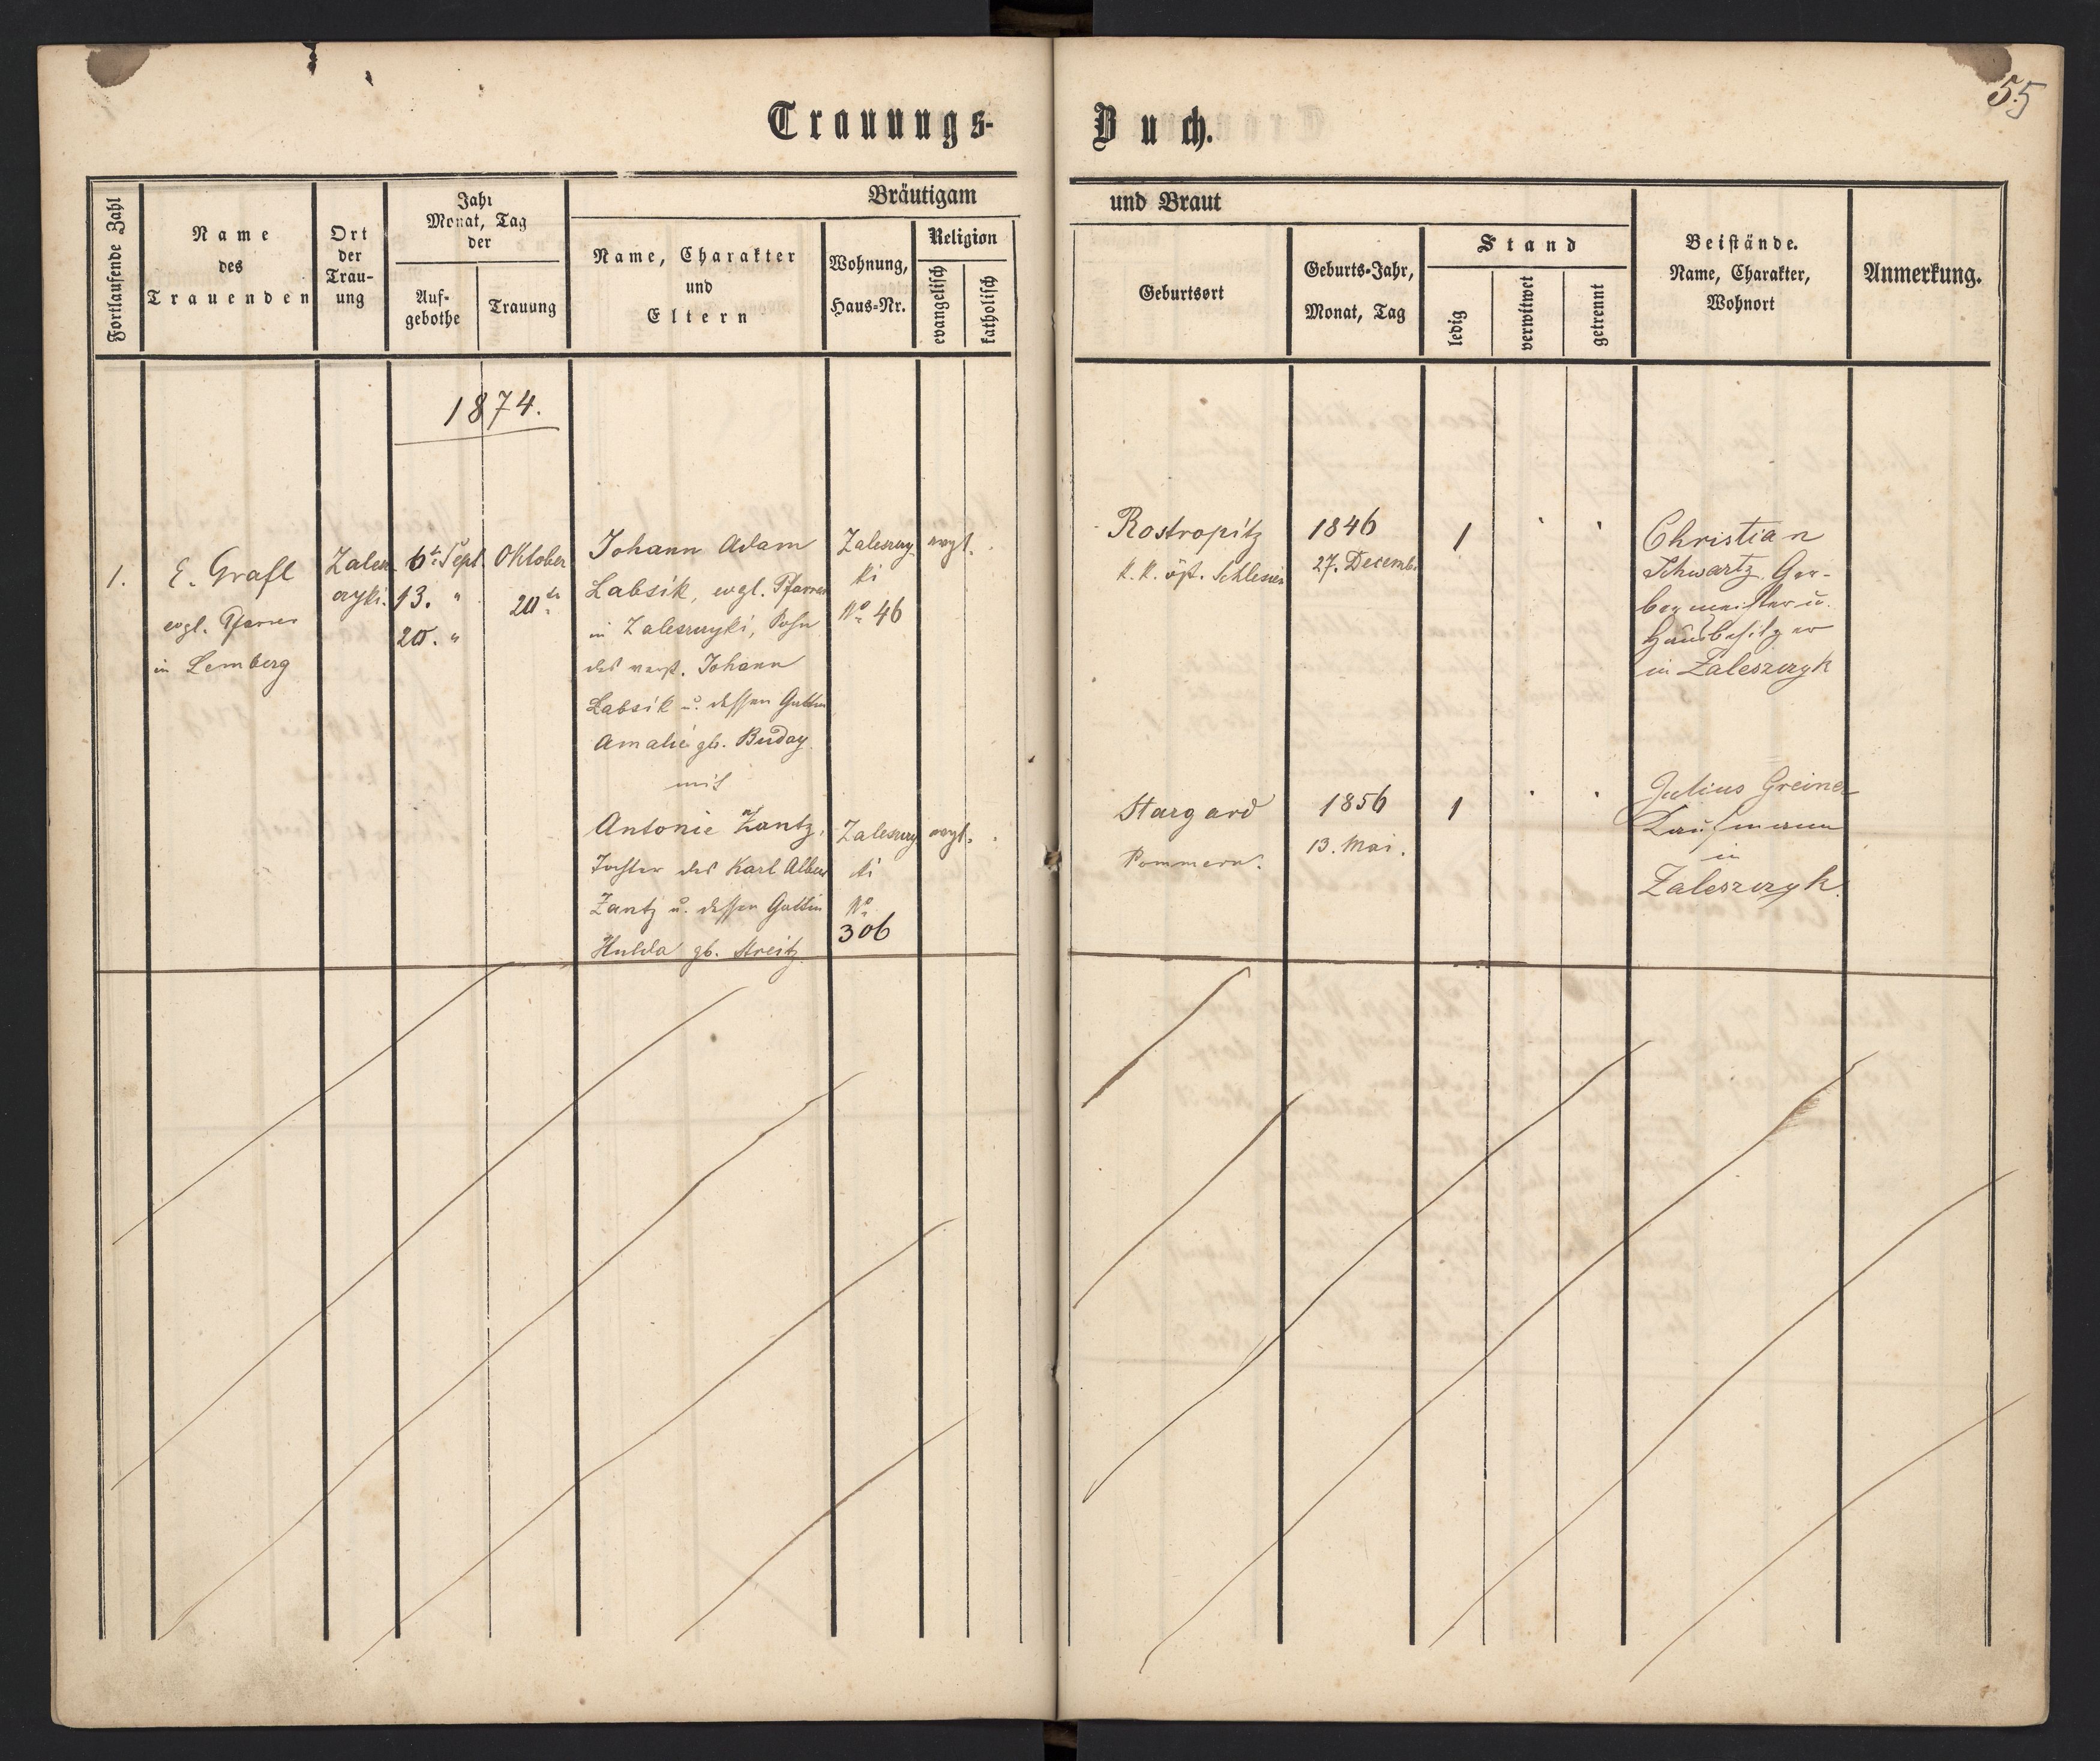 55
Trauungs-
Buch.
Fortlaufende Zahl
Name
des
Trauenden
Ort
der
Trau-
ung
Jahr
Monat, Tag
der
Auf-
gebothe
Trauung
Bräutigam
Name, Charakter
und
Eltern
Wohnung,
Haus-Nr.
Religion
evangelisch
katholisch
und Braut
Geburtsort
Geburts-Jahr,
Monat, Tag
Stand
ledig
verwitwet
getrennt
Beistände.
Name, Charakter,
Wohnort
Anmerkung.
1874.
1.
E. Grafl
evgl. Pfarrer
in Lemberg
Zalesz
czyki.
6te Sept.
13. "
20. "
Oktober
20te
Johann Adam
Labsik, evgl. Pfarrer
in Zaleszczyki, Sohn
des verst. Johann
Labsik u. dessen Gattin
Amalie gb. Buday
mit
Antonie Zantz,
Tochter des Karl Albert
Zantz u. dessen Gattin
Hulda gb. Streitz
Zaleszczy
ki
No 46
evgl.
Zaleszczy
ki
No
306
evgl.
Rostropitz
k. k. öst. Schlesien
1846
27. Decemb.
1
Stargard
Pommern.
1856
13. Mai.
1
Christian
Schwartz, Ger-
bermeister u.
Hausbesitzer
in Zaleszczyk
Julius Greiner
Kaufmann
in
Zaleszczyk.